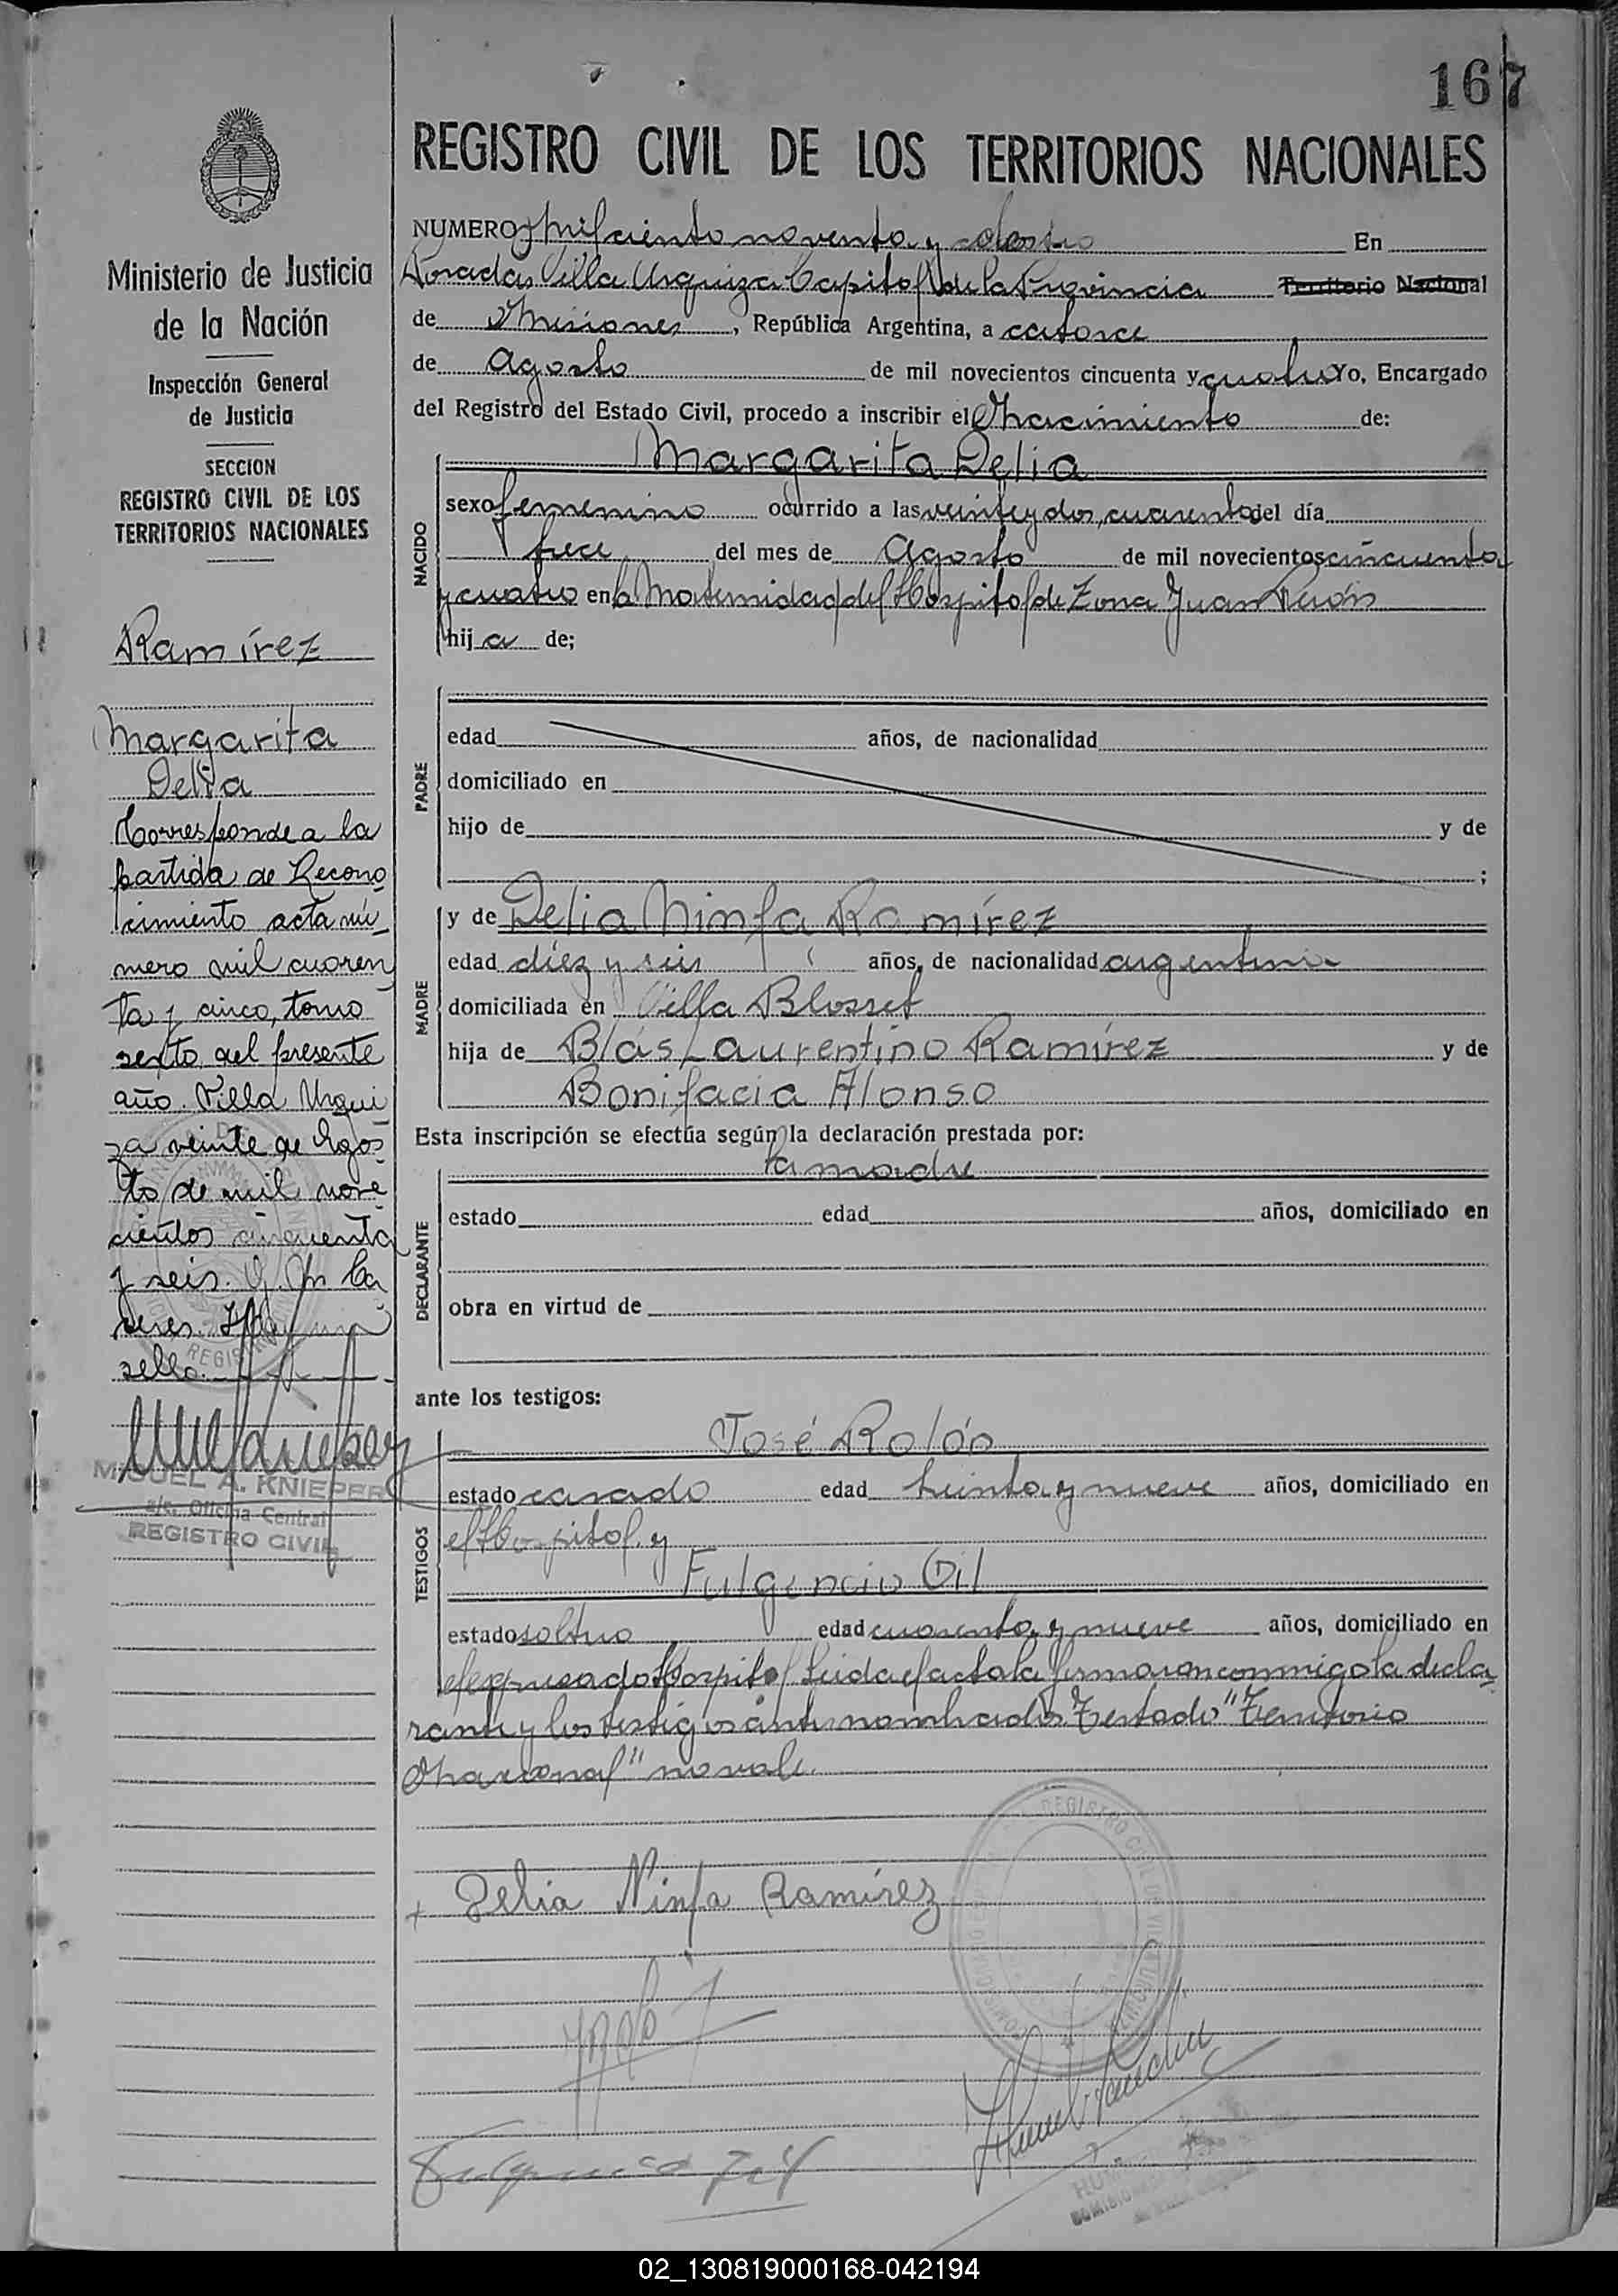 167
REGISTRO CIVIL DE LOS TERRITORIOS NACIONALES
Ministerio de Justicia
de la Nación
Inspección General
de Justicia
SECCION
REGISTRO CIVIL DE LOS
TERRITORIOS NACIONALES
Ramírez
Margarita
Delia
Corresponde a la
partida de Recono
cimiento acta nú_
mero mil cuaren
ta y cinco, tomo
sexto del presente
año. Villa Urqui
za veinte de Agos
to de mil nove
cientos cincuenta
y seis.
sello.
MIGUEL A. KNIEPER
a/c. Oficina Central
REGISTRO CIVIL
NUMERO mil ciento noventa y En
Posadas Villa Urquiza Capital de la Provincia Territorio Nacional
de Misiones, República Argentina, a catorce
de Agosto de mil novecientos cincuenta y cuatro Yo, Encargado
del Registro del Estado Civil, procedo a inscribir el Nacimiento de:
Margarita Delia
NACIDO
sexo femenino ocurrido a las veinte y dos, cuarenta del día
trece del mes de Agosto de mil novecientos cincuenta
y cuatro en la Maternidad del Hospital de Zona Juan Perón
hija de;
PADRE
edad años, de nacionalidad
domiciliado en
hijo de y de
;
MADRE
y de Delia Ninfa Ramírez
edad diez y seis años, de nacionalidad argentina
domiciliada en Villa Blosset
hija de Blás Laurentino Ramírez y de
Bonifacia Alonso
Esta inscripción se efectúa según la declaración prestada por:
la madre
DECLARANTE
estado edad años, domiciliado en
obra en virtud de
ante los testigos:
TESTIGOS
José Rolón
estado casado edad treinta y nueve años, domiciliado en
el Hospital. y
Fulgencio Gil
estado soltero edad cuarenta y nueve años, domiciliado en
el expresado Hospital. Leida el acta la firmaron conmigo la decla_
rante y los testigos antes nombrados. Testado "Territorio
Nacional" no vale.
Delia Ninfa Ramírez
02_130819000168-042194